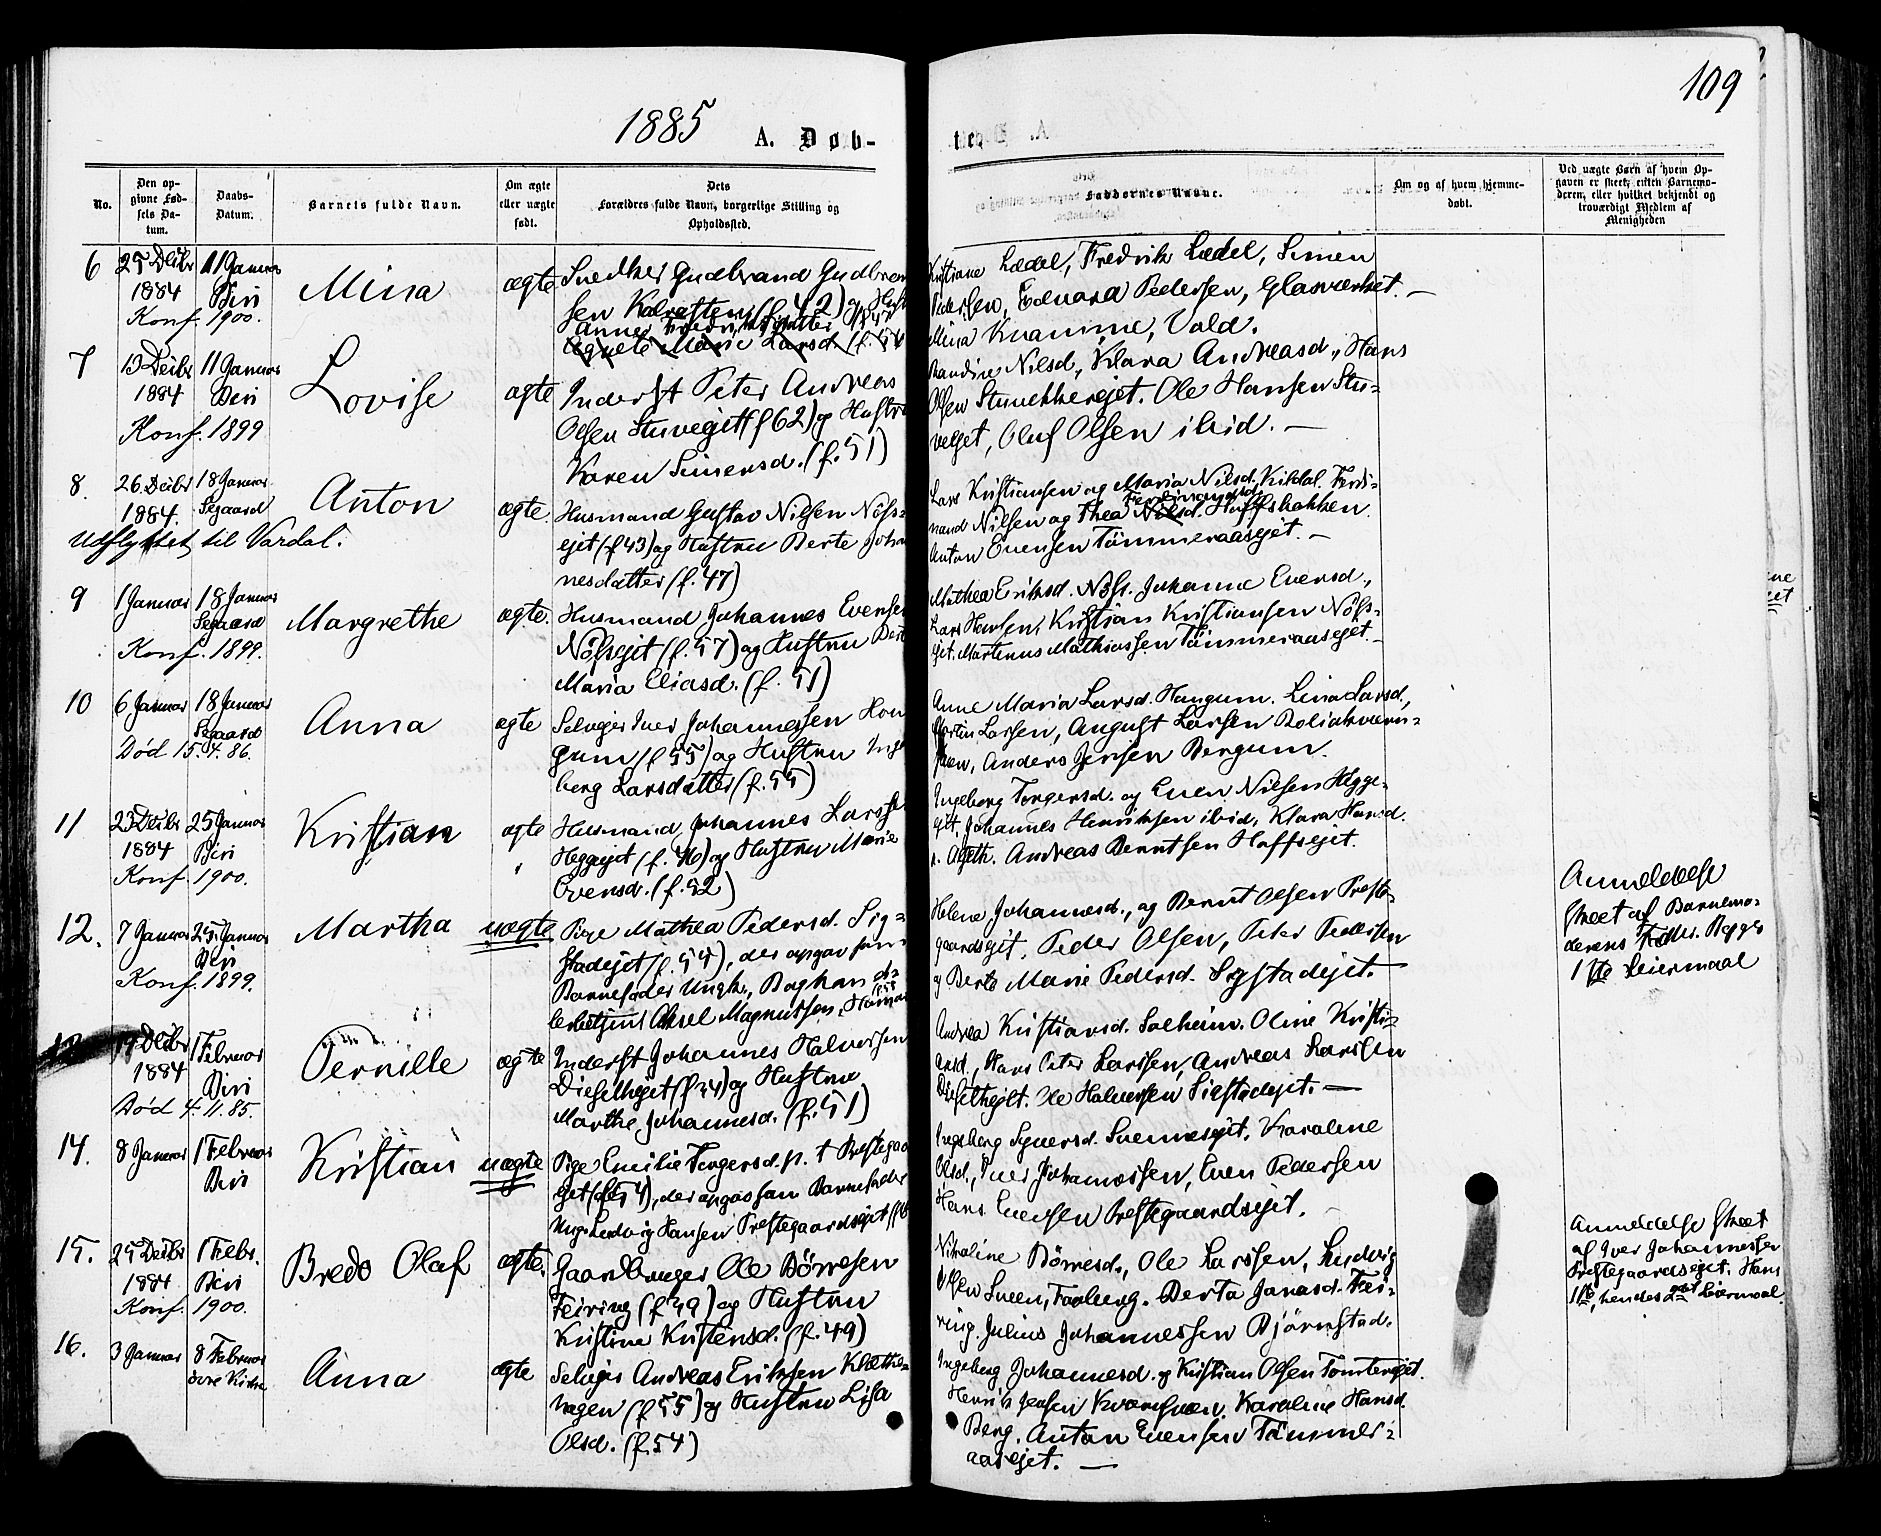 109
1885
A. Døb-
No.
Den op-
givne Fød-
sels Da-
tum.
Daabs-
Datum.
Barnets fulde Navn.
Om ægte
eller uægte
født.
Dets
Forældres fulde Navn, borgerlige Stilling og
Opholdssted.
Faddernes Navne.
Om og af hvem hjemme-
døbt.
Ved uægte Børn af hvem Op-
gaven er skeet, enten Barnemo-
deren, eller hvilket bekjendt og
troværdigt Medlem af
Menigheden
6
25 Decbr
1884
11 Januar
Biri
Konf. 1900.
Mina
ægte
Snedker Gudbrand
(f. 42) og
Lædel, Fredrik Lædel, Simen
Edvard Pedersen, Glasværket. —
Mina Knamme, Vald.
7
13 Decbr
1884
11 Januar
Biri
Konf. 1899
Lovise
ægte
Inderst Peter Andreas
Olsen (f 62) og Hustru
Karen Simensd. (f. 51)
Nilsd., Klara Andreasd., Hans
Olsen Ole Hansen Stu-
Oluf Olsen ibid. —
8.
26. Decbr
1884.
18 Januar
Segaard
Udflyttet til Vardal.
Anton
ægte.
Husmand Gustav Nilsen Nöss-
ejet (f 43) og Hustru Berte Johan
nesdatter (f. 47)
Lars Kristiansen og Maria Nilsd. Kildal. Ferdi-
nand Nilsen og Thea Nilsd. Hoffsbakken.
Anton Evensen Tömmeraasejet. —
9
1 Januar
18 Januar
Segaard
Konf. 1899.
Margrethe
ægte.
Husmand Johannes Evensen
Nössejet (f. 57) og Hustru
Maria Eliasd. (f. 51)
Mathea Eriksd. Nöss. Johanne Evensd.,
Lars Hansen, Kristian Kristiansen Nöss-
ejet. Martinus Mathiassen Tömmeraasejet. —
10
6 Januar
18 Januar
Segaard
Död 15. 4. 86.
Anna
ægte
Selveier Iver Johannessen Hon
gum (f 55) og Hustru Inge
berg Larsdatter (f. 55)
Anne Maria Larsd. Hongum. Lina Larsd.,
Martin Larsen, August Larsen
Anders Jensen Bergum.
11
23 Decbr
1884
25 Januar
Biri
Konf. 1900.
Kristian
ægte
Husmand Johannes Larsen
Heggejet (f. 46) og Hustru Marie
Evensd. (f. 52)
Ingeborg Torgersd. og Even Nilsen Hegge-
ejet, Johannes Henriksen ibid, Klara Hansd.
Andreas Berntsen Hoffsejet.
12.
7 Januar
25 Januar
Biri
Konf. 1899.
Martha
uægte
Pige Mathea Pedersd. Sig-
stadejet (f. 54), der opgav som
Barnefader Ungk.,
Aksel Magnussen, Hamar
Helene Johannesd., og Bernt Olsen Preste-
gaardsejet, Peder Olsen, Peter Pedersen
og Berte Marie Pedersd. Sigstadejet. —
Anmeldelse
skeet af Barnemo-
derens Fader. Begges
1ste Leiermaal
13
19 Decbr
1884
1 Februar
Biri
Död 4. 11. 85.
Pernille
ægte
Inderst Johannes Halvorsen
og Hustru
Marthe Johannesd. (f. 51)
Andrea Kristiansd. Solheim. Oline Kristi-
ansd., Hans Peter Larssen, Andreas Larssen
Ole Halvorsen Sigstadejet. —
14.
8 Januar
1 Februar
Biri
Kristian
uægte
Pige Emilie Torgersd. p. t. Prestegaa
ejet (f 54), der opgav som Barnefader
Ungk. Ludvig Hansen Prestegaardsejet
Ingeborg Syversd. Svennesejet, Karoline
Olsd., Iver Johannessen, Even Pedersen
Hans Evensen Prestegaardsejet.
Anmeldelse skeet
af Iver Johannessen
Prestegaardsejet. Hans
1ste, hendes 2det Leiermaal
15.
25 Decbr
1884
1 Febr.
Biri
Konf. 1900.
Bredo Olaf
ægte.
Gaardbruger Ole Börresen
Feiring (f 49) og Hustru
Kristine Kristensd. (f. 49)
Nikoline Börresd., Ole Larssen, Ludvig
Olsen Sveen, Faaberg. Berta Jonasd. Fei-
ring. Julius Johannessen Björnstad.
16.
3 Januar
8 Februar
Anna
ægte
Selveier Andreas Eriksen Klæthe-
hagen (f 55) og Hustru Lisa
Olsd. (f. 54)
Ingeborg Johannesd. og Kristian Olsen Tomterejet.
Henrik Jensen Karoline Hansd.
Berg. Anton Evensen Tömmer-
aasejet. —